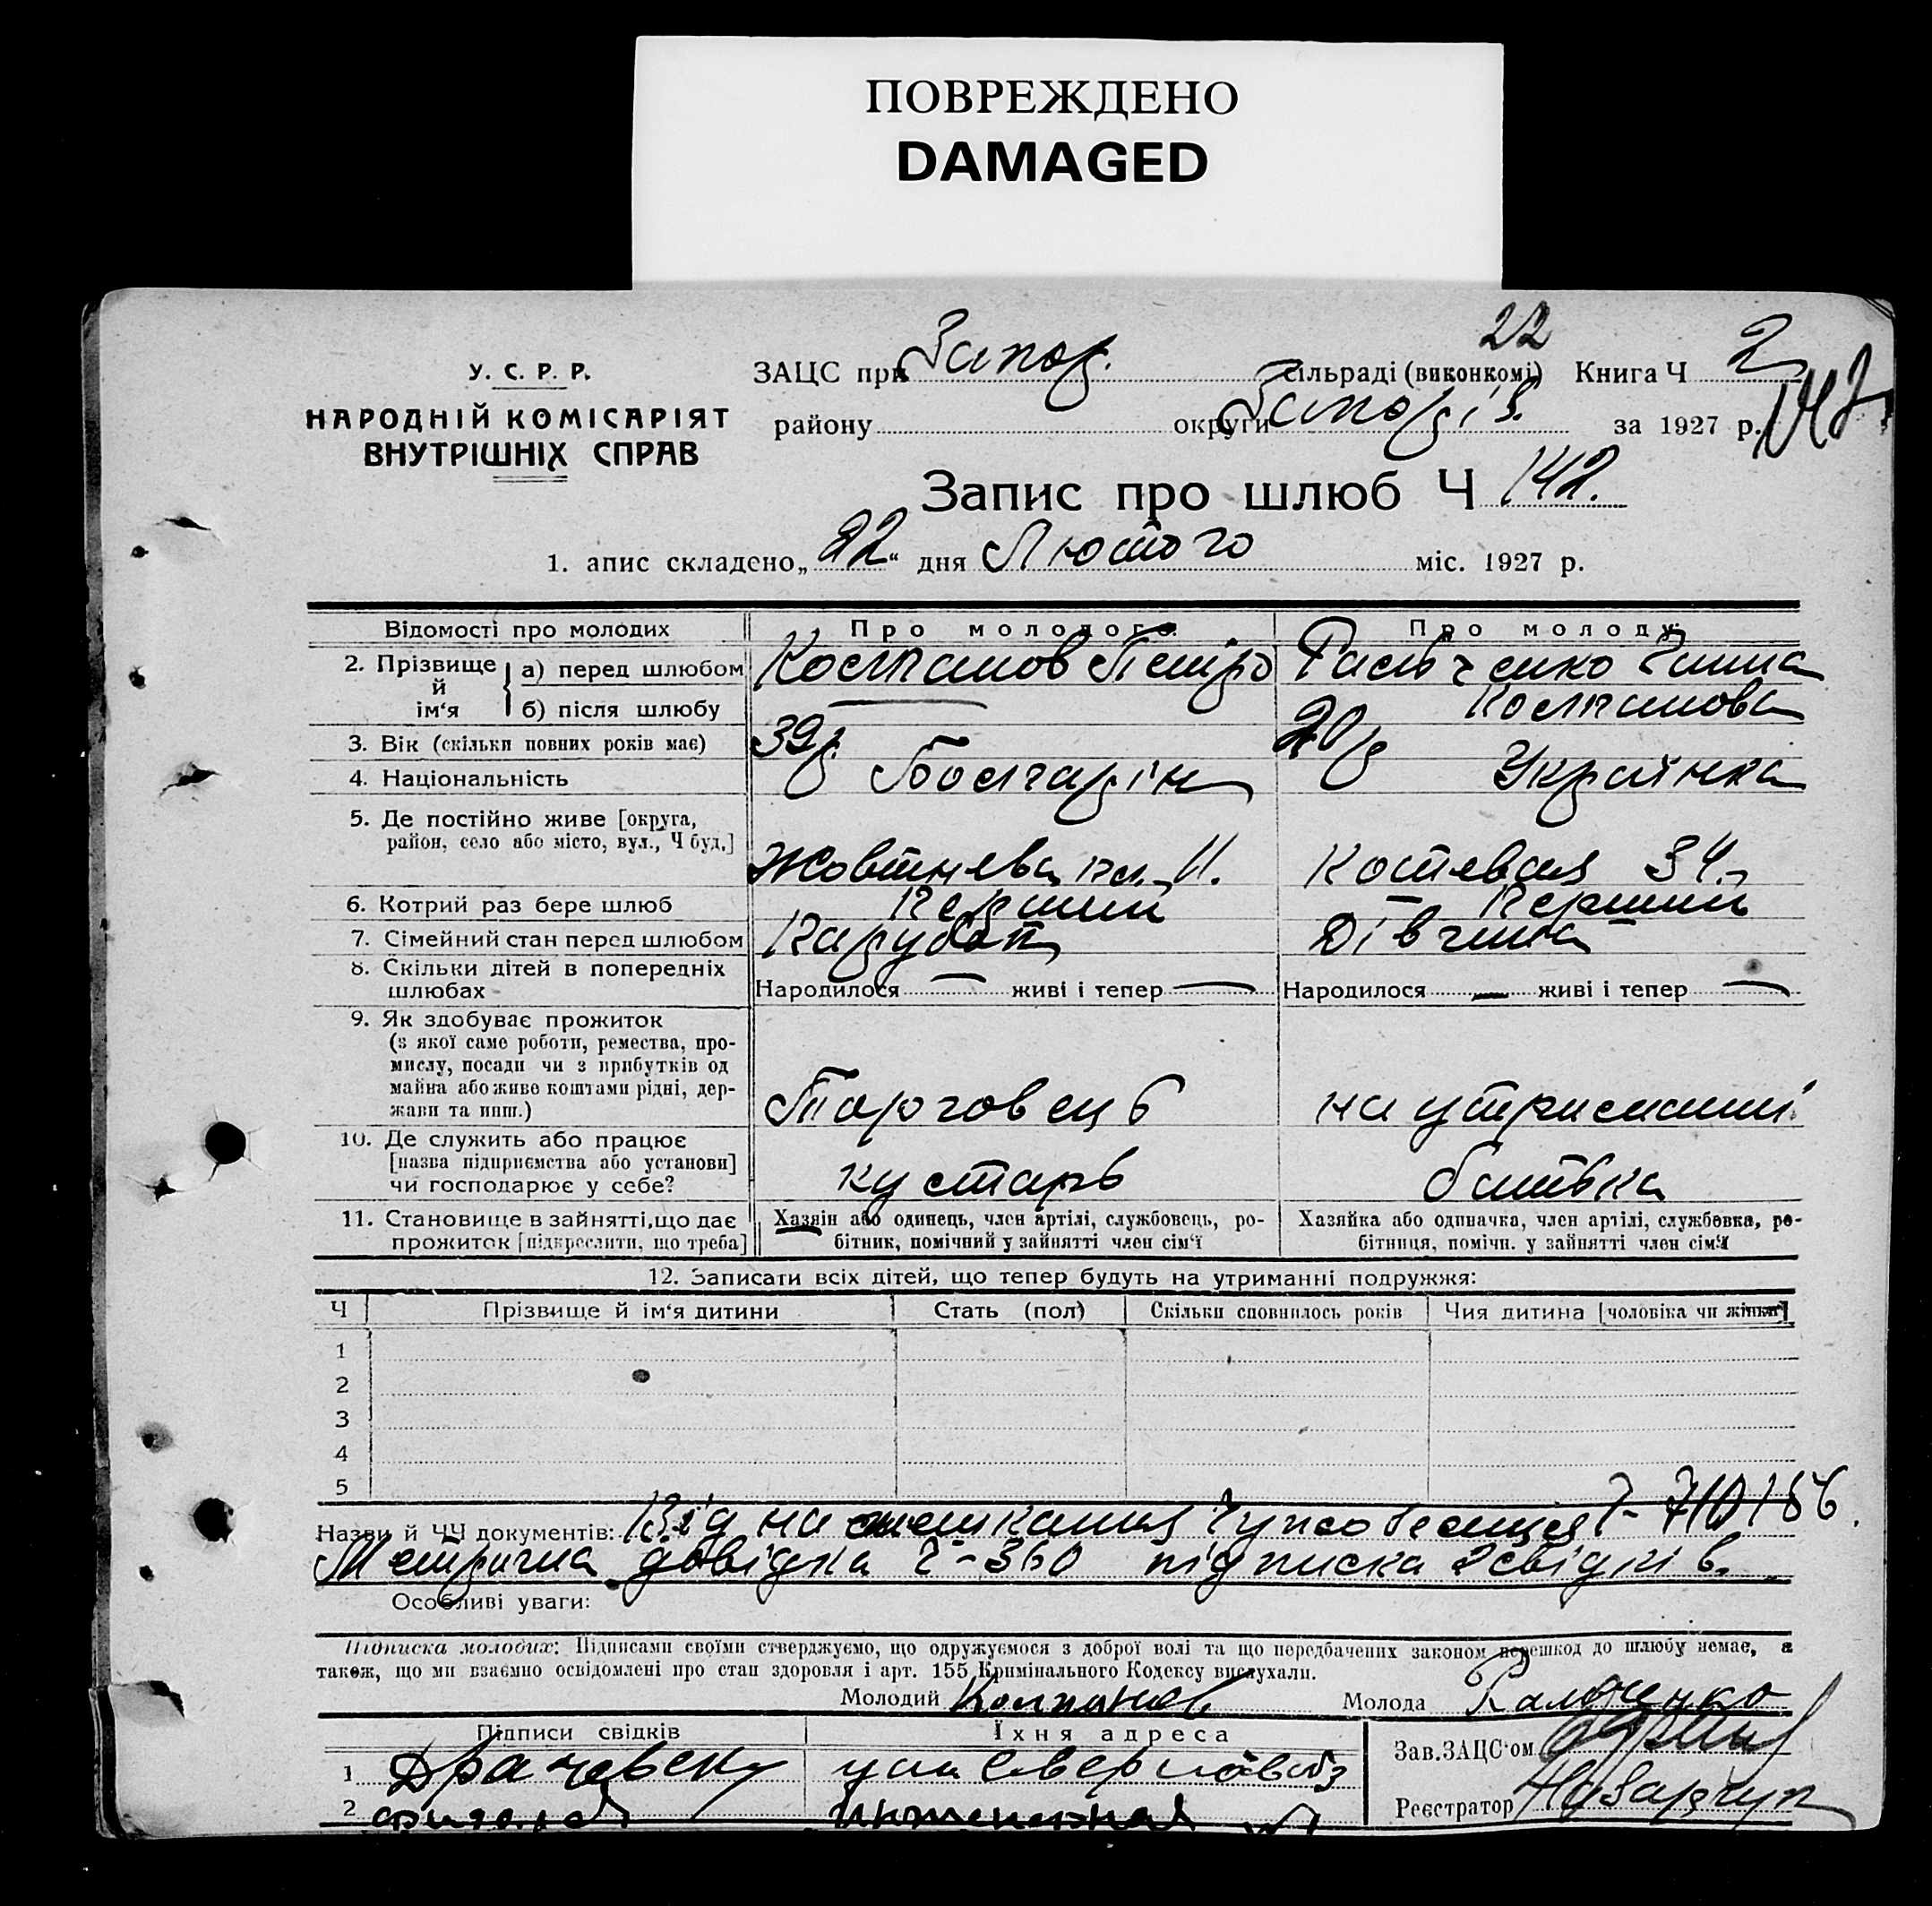 ПОВРЕЖДЕНО
DAMAGED
22
У. С. Р. Р.
НАРОДНІЙ КОМІСАРІЯТ
ВНУТРІШНІХ СПРАВ
ЗАЦС при Запор. сільраді (виконкомі) Книга Ч 2
району округи Запоріз. за 1927 р.
Запис про шлюб Ч 142.
1. апис складено „22“ дня Лютого міс. 1927 р.
Відомості про молодих Про молодого Про молоду:
2. Прізвище й ім‘я а) перед шлюбом Колпаков Петро
б) після шлюбу
3. Вік (скільки повних років має) 39 р. 20 р
4. Національність Болгарін Українка
5. Де постійно живе [округа,
район, село або місто, вул., Ч буд.] Жовтнева пл. 11. 34.
6. Котрий раз бере шлюб Перший Перший
7. Сімейний стан перед шлюбом Парубок Дівчина
8. Скільки дітей в попередніх
шлюбах Народилося — живі і тепер — Народилося — живі і тепер —
9. Як здобуває прожиток
(з якої саме роботи, ремества, про-
мислу, посади чи з прибутків од
майна або живе коштами рідні, дер-
жави та инш.) Торговець на утриманні
10. Де служить або працює
[назва підприємства або установи]
чи господарює у себе? кустарь батька
11. Становище в зайнятті, що дає
прожиток [підкреслити, що треба]
Хазяін або одинець, член артілі, службовець, ро-
бітник, помічний у зайнятті член сім‘ї
Хазяйка або одиначка, член артілі, службовка, ро-
бітниця, помічн. у зайнятті член сім‘ї
12. Записати всіх дітей, що тепер будуть на утриманні подружжя:
Ч Прізвище й ім‘я дитини Стать (пол) Скільки сповнилось років Чия дитина [чоловіка чи жінки]
1
2
3
4
5
Назви й ЧЧ документів: Від на мешкання Чужоземця Ч-710156.
Метрична довідка Ч-360 підписка 2 свідків.
Особливі уваги:
Підписка молодих: Підписами своїми стверджуємо, що одружуємося з доброї волі та що передбачених законом перешкод до шлюбу немає, а
також, що ми взаємно освідомлені про стан здоровля і арт. 155 Кримінального Кодексу вислухали.
Молодий Колпаков Молода
Підписи свідків Їхня адреса
1
2
Зав.ЗАЦС‘ом
Реєстратор Назарчук